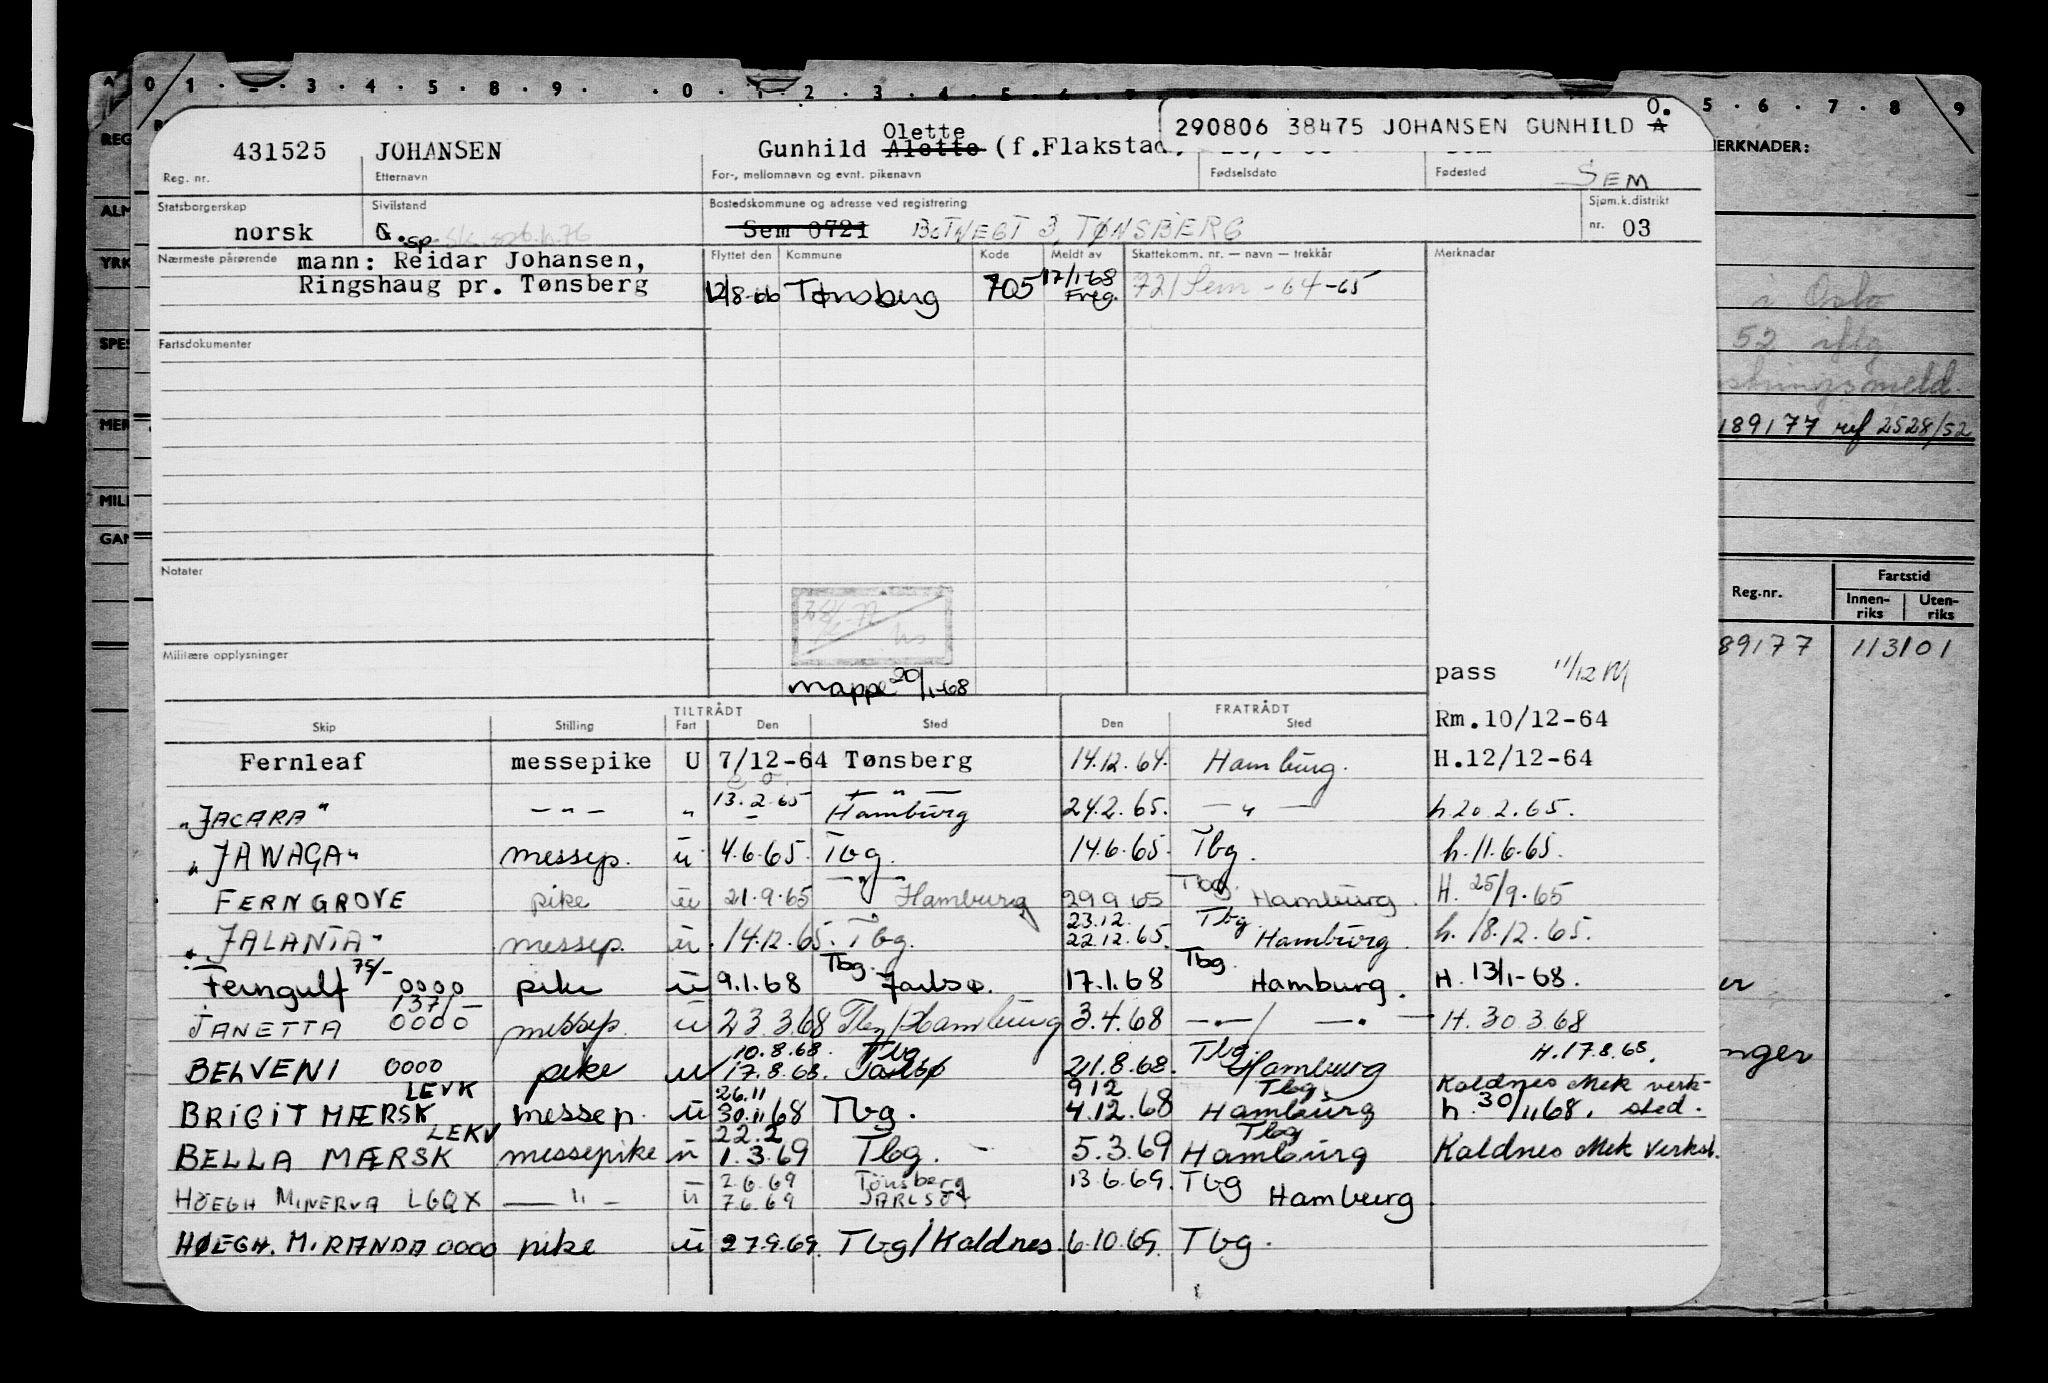 0 1 . . 3 . 4 . 5 . 8 . 9 . . 0 . 1 . 2 . 3 . 4 . 5 . 6 . 7 5 . 6 . 7 . 8 9
290806 38475 JOHANSEN GUNHILD A O.
431525 JOHANSEN Gunhild Alette Olette (f.Flakstad.
Reg. nr. Etternavn For-, mellomnavn og evnt. pikenavn Fødselsdato Fødested SEM
Statsborgerskap Sivilstand Bostedskommune og adresse ved registrering Sjøm.k.distrikt
norsk G. sp. Sem 0721 3, TØNSBERG nr. 03
Nærmeste pårørende mann: Reidar Johansen, Flyttet den Kommune Kode Meldt av Skattekomm. nr. — navn — trekkår Merknadar
Ringshaug pr. Tønsberg 12/8-66 Tønsberg 705 17/1-68 Freg. 721 Sem -64-65
Fartsdokumenter
Notater
Militære opplysninger
mappe 20/1-68
pass 11/12
TILTRÅDT FRATRÅDT
Skip Stilling Fart Den Sted Den Sted Rm.10/12-64
Fernleaf messepike U 7/12-64 Tønsberg 14.12.64. Hamburg. H.12/12-64
"JACARA" — " — " 13.2.65 — " — Hamburg 24.2.65. — " — h.20.2.65.
"JAWAGA" messep. u 4.6.65. Tbg. 14.6.65. Tbg. h.11.6.65.
FERNGROVE pike u 21.9.65 — " — Hamburg 29.9.65 Tbg. Hamburg. H. 25/9-65
"JALANTA" messep. u. 14.12.65. Tbg. 23.12. 22.12.65. Tbg Hamburg. h.18.12.65.
Ferngulf 75/- 0000 pike u 9.1.68 Tbg. Jarlsø. 17.1.68 Tbg. Hamburg. H. 13/1-68.
JANETTA 137/- 0000 messep. u 23.3.68 Tbg/Hamburg 3.4.68 — " — / — " — H.30.3.68
BELVENI 0000 pike u 10.8.68. 17.8.68. Tbg Jarlsø 21.8.68. Tbg. Hamburg H.17.8.68.
BRIGIT MÆRSK LEVK messep. u 26.11 30.11.68 Tbg. 9.12 4.12.68 Tbg Hamburg Kaldnes Mek verk- h. 30/11 68. sted.
BELLA MÆRSK LEKV messepike u 22.2 1.3.69 Tbg. - 5.3.69 Tbg Hamburg Kaldnes Mek Verkst.
HÖEGH MINERVA LGQX — " — u 2.6.69 7.6.69 Tønsberg JARLSØY 13.6.69. Tbg Hamburg
HØEGH. MIRANDA 0000 pike u 27.9.69. Tbg/Kaldnes. 6.10.69. Tbg.
REG
ALM
YRK
SPES
MER
MILI
GAN
MERKNADER:
i Oslo
52 iflg
meld.
189177 ref 2528/52
Fartstid
Reg.nr. Innen-riks Uten-riks
89177 113101
er
nger